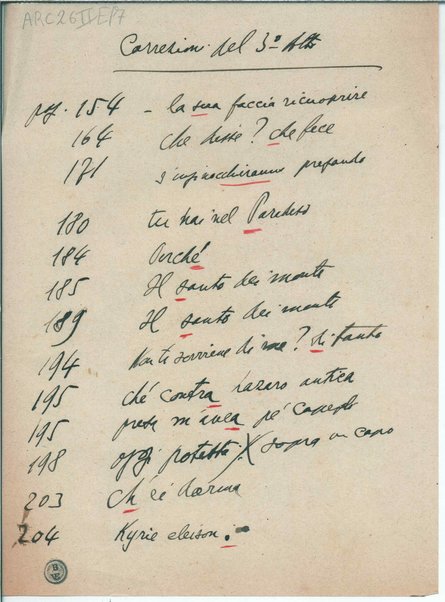 ARC26IIEP7
Correzioni del 3º Atto
pg. 154 - la sua faccia ricuoprire
164 che disse? che fece
171 s'inginocchieranno profondo
180 tu hai nel Paradiso
184 Perché
185 Il santo dei monti
189 Il santo dei monti
194 Non te sovviene di me? di tanto
195 ché contra razaro antica
195 prese m'avea pé capegli
198 oggi potesta X sopra un capo
203 Ch' è'
204 Kyrie eleison.